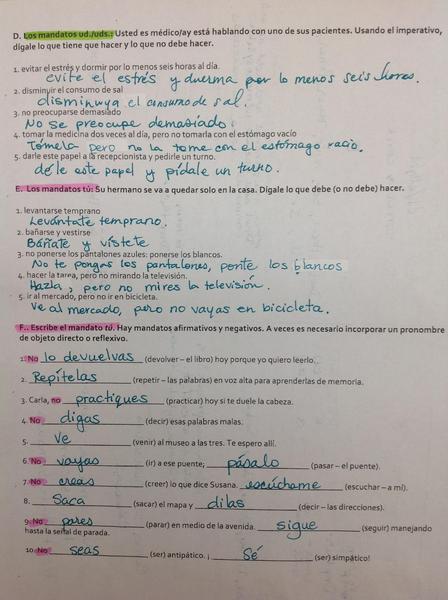 D. Los mandatos ud./uds.: Usted es médico/ay está hablando con uno de sus pacientes. Usando el imperativo,
dígale lo que tiene que hacer y lo que no debe hacer.
1. evitar el estrés y dormir por lo menos seis horas al día.
evite el estrés y duerma por lo menos seis horas.
2. disminuir el consumo de sal
disminuya el consumo de sal.
3. no preocuparse demasiado
No se preocupe demasiado.
4. tomar la medicina dos veces al día, pero no tomarla con el estómago vacío
Tómela pero no la tome con el estómago vacío.
5. darle este papel a la recepcionista y pedirle un turno.
déle este papel y pídale un turno.
E. Los mandatos tú: Su hermano se va a quedar solo en la casa. Dígale lo que debe (o no debe) hacer.
1. levantarse temprano
Levántate temprano.
2. bañarse y vestirse
Báñate y vístete
3. no ponerse los pantalones azules: ponerse los blancos.
No te pongas los pantalones, ponte los blancos
4. hacer la tarea, pero no mirando la televisión.
Hazla, pero no mires la televisión.
5. ir al mercado, pero no ir en bicicleta.
Ve al mercado, pero no vayas en bicicleta.
F.. Escribe el mandato tú. Hay mandatos afirmativos y negativos. A veces es necesario incorporar un pronombre
de objeto directo o reflexivo.
1. No lo devuelvas (devolver – el libro) hoy porque yo quiero leerlo.
2. Repítelas (repetir – las palabras) en voz alta para aprenderlas de memoria.
3. Carla, no practiques (practicar) hoy si te duele la cabeza.
4. No digas (decir) esas palabras malas.
5. ve (venir) al museo a las tres. Te espero allí.
6. No vayas (ir) a ese puente; pásalo (pasar – el puente).
7. No creas (creer) lo que dice Susana. escúchame (escuchar – a mí).
8. Saca (sacar) el mapa y dilas (decir – las direcciones).
9. No pares (parar) en medio de la avenida. sigue (seguir) manejando
hasta la señal de parada.
10. No seas (ser) antipático. ¡ Sé (ser) simpático!